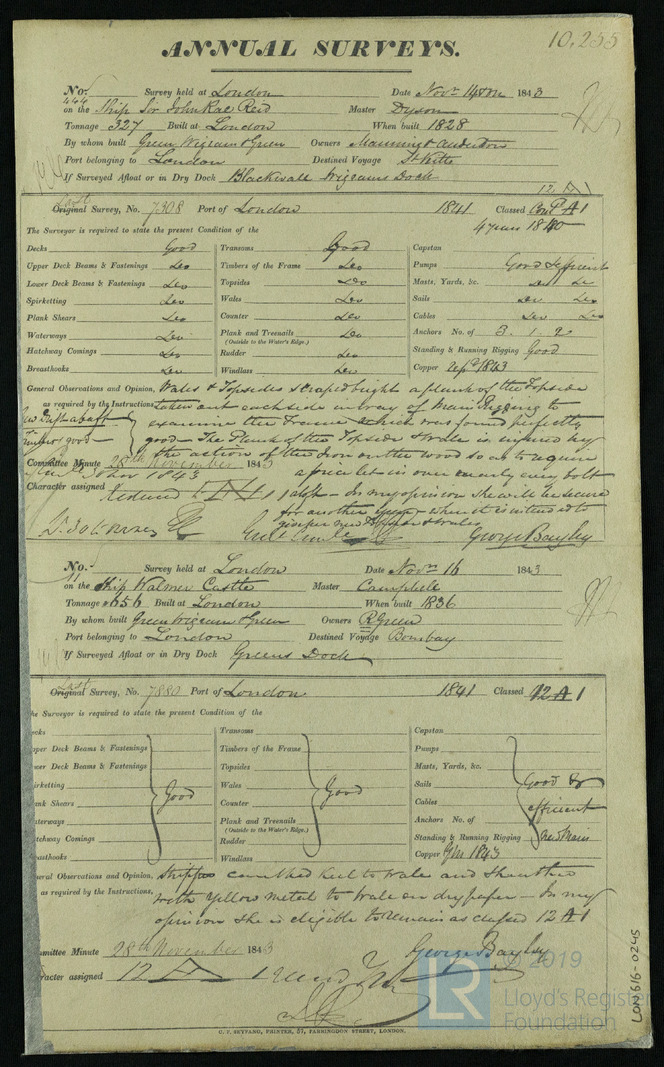 10,255
ANNUAL SURVEYS.
No. 444 Survey held at London Date Novr 14th 1843
on the Ship Sir John Rae Reid Master Dyson
Tonnage 327 Built at London When built 1828
By whom built Green Wigrams & Green Owners Manning & Anderdon
Port belonging to London Destined Voyage St Kitts
If Surveyed Afloat or in Dry Dock Blackwall Wigrams Dock
12 A 1
Last
Original Survey, No. 7308 Port of London 1841 Classed Contd A 1
The Surveyor is required to state the present Condition of the 4 years 1840
Decks Good Transoms Good Capstan
Upper Deck Beams & Fastenings Do Timbers of the Frame Do Pumps Good & efficient
Lower Deck Beams & Fastenings Do Topsides Do Masts, Yards, &c. Do Do
Spirketting Do Wales Do Sails Do Do
Plank Shears Do Counter Do Cables Do Do
Waterways Do Plank and Treenails Do Anchors No. of 3. 1. 2.
(Outside to the Water's Edge.)
Hatchway Comings Do Rudder Do Standing & Running Rigging Good
Breasthooks Do Windlass Do Copper Sept 1843
General Observations and Opinion, Wales & Topsides scraped bright a plank of the Topside
as required by the Instructions, taken out each side in way of Main Rigging to
examine the Frame which was found perfectly
good — The Plank of the Topside & Wale is injured by
the action of the Iron on the wood so as to require
a piece let in over nearly every bolt
Committee Minute 28th November 1843
Character assigned A 1
also — In my opinion she will be secure
for another year when it is intended to
give her new Topsides & Wales
George Bayley
No. Survey held at London Date Novr 16 1843
on the Ship Walmer Castle Master Campbell
Tonnage 656 Built at London When built 1836
By whom built Green Wigrams & Green Owners R Green
Port belonging to London Destined Voyage Bombay
If Surveyed Afloat or in Dry Dock Greens Dock
Last
Original Survey, No. 7880 Port of London 1841 Classed 12 A 1
he Surveyor is required to state the present Condition of the
ecks Transoms Capstan
pper Deck Beams & Fastenings Timbers of the Frame Pumps
wer Deck Beams & Fastenings Topsides Masts, Yards, &c.
irketting Good Wales Good Sails Good &
ank Shears Counter Cables efficient
aterways Plank and Treenails Anchors No. of
(Outside to the Water's Edge.)
atchway Comings Rudder Standing & Running Rigging
easthooks Windlass Copper 1843
eral Observations and Opinion, Stripped caulked keel to Wale and sheathed
as required by the Instructions, with yellow metal to Wale on dry paper — In my
opinion she is eligible to remain as classed 12 A 1
mmittee Minute 28th November 1843 George Bayley
aracter assigned 12 A 1
C. F. SEYFANG, PRINTER, 57, FARRINGDON STREET, LONDON.
LON 616-0245
LR
© 2019
Lloyd's Register
Foundation